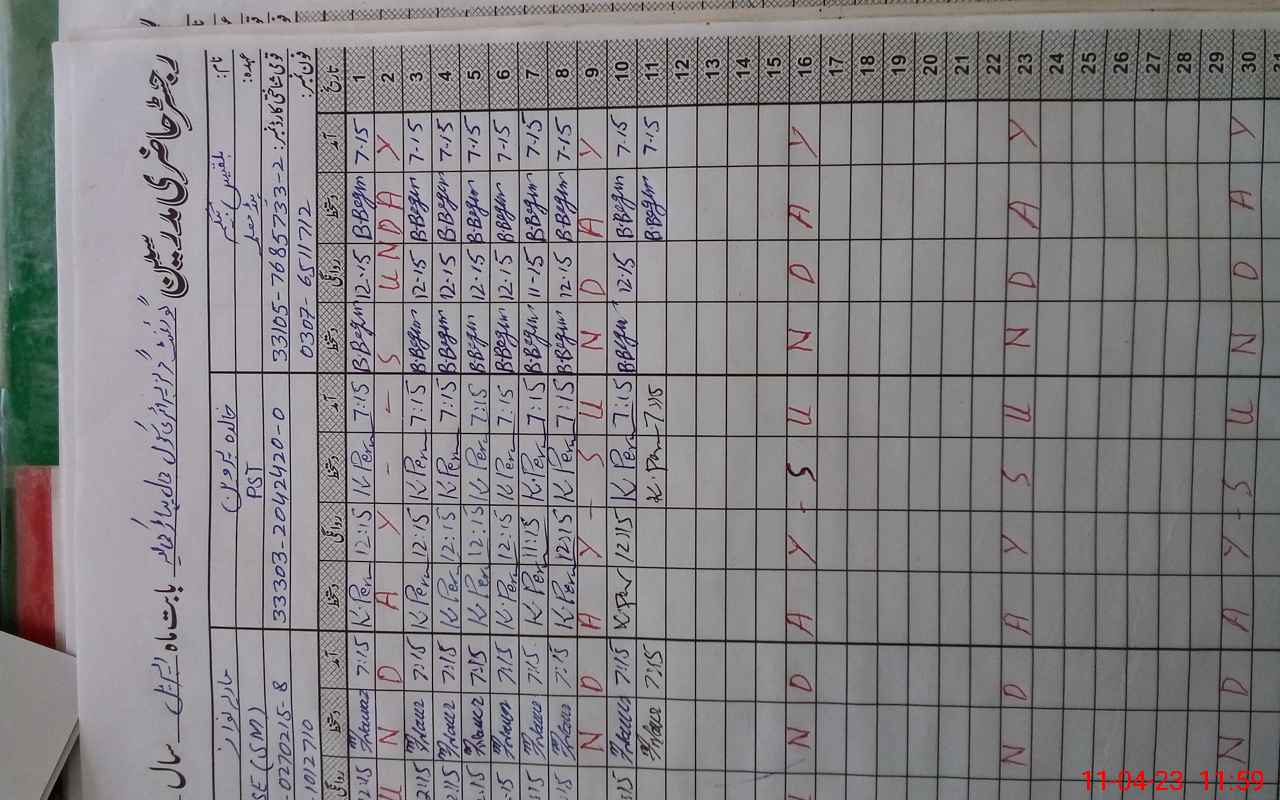 رجسٹر حاضری مدرسین گورنمنٹ گرلز پرائمری سکول بابت ماہ اپریل سال
نام: بلقیس بیگم خالدہ پروین
عہدہ: PST SE (SM)
قومی شناختی کارڈ نمبر: 33105-7685733-2 33303-2042420-0 -0270215-8
فون نمبر: 0307-6511712 -1012710
تاریخ آمد دستخط روانگی دستخط آمد دستخط روانگی دستخط آمد دستخط روانگی
1 7-15 B.Begum 12-15 B.Begum 7:15 K.Perv 12:15 K.Perv 7:15 12:15
2 Y A D N U S - - Y A D N U
3 7-15 B.Begum 12-15 B.Begum 7:15 K.Perv 12:15 K.Perv 7:15 2:15
4 7-15 B.Begum 12-15 B.Begum 7:15 K.Perv 12:15 K.Perv 7:15 2:15
5 7-15 B.Begum 12-15 B.Begum 7:15 K.Perv 12:15 K.Perv 7:15 2.15
6 7-15 B.Begum 12-15 B.Begum 7:15 K.Perv 12:15 K.Perv 7:15 -15
7 7-15 B.Begum 11-15 B.Begum 7:15 K.Perv 11:15 K.Perv 7:15 :15
8 7-15 B.Begum 12-15 B.Begum 7:15 K.Perv 12:15 K.Perv 7:15 :15
9 Y A D N U S - Y A D N
10 7.15 B.Begum 12:15 B.Begum 7:15 K.Perv 12:15 K.Perv 7:15 :15
11 7.15 B.Begum 7:15 K.Perv 7:15
12
13
14
15
16 Y A D N U S - Y A D N U
17
18
19
20
21
22
23 Y A D N U S Y A D N
24
25
26
27
28
29
30 Y A D N U S - Y A D N
31
11-04-23 11:59